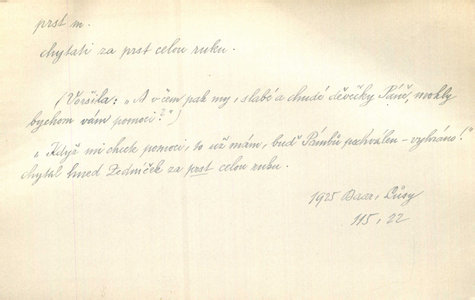 prst m.
chytati za prst celou ruku.
(Voršila: „A v čem pak my, slabé a chudé děvečky Páně, mohly
bychom vám pomoci?")
„Když mi chcete pomoci, to už mám, buď Pámbů pochválen – vyhráno!"
chytal hned Zedníček za prst celou ruku.
1925 Baar, Lůsy
115, 22